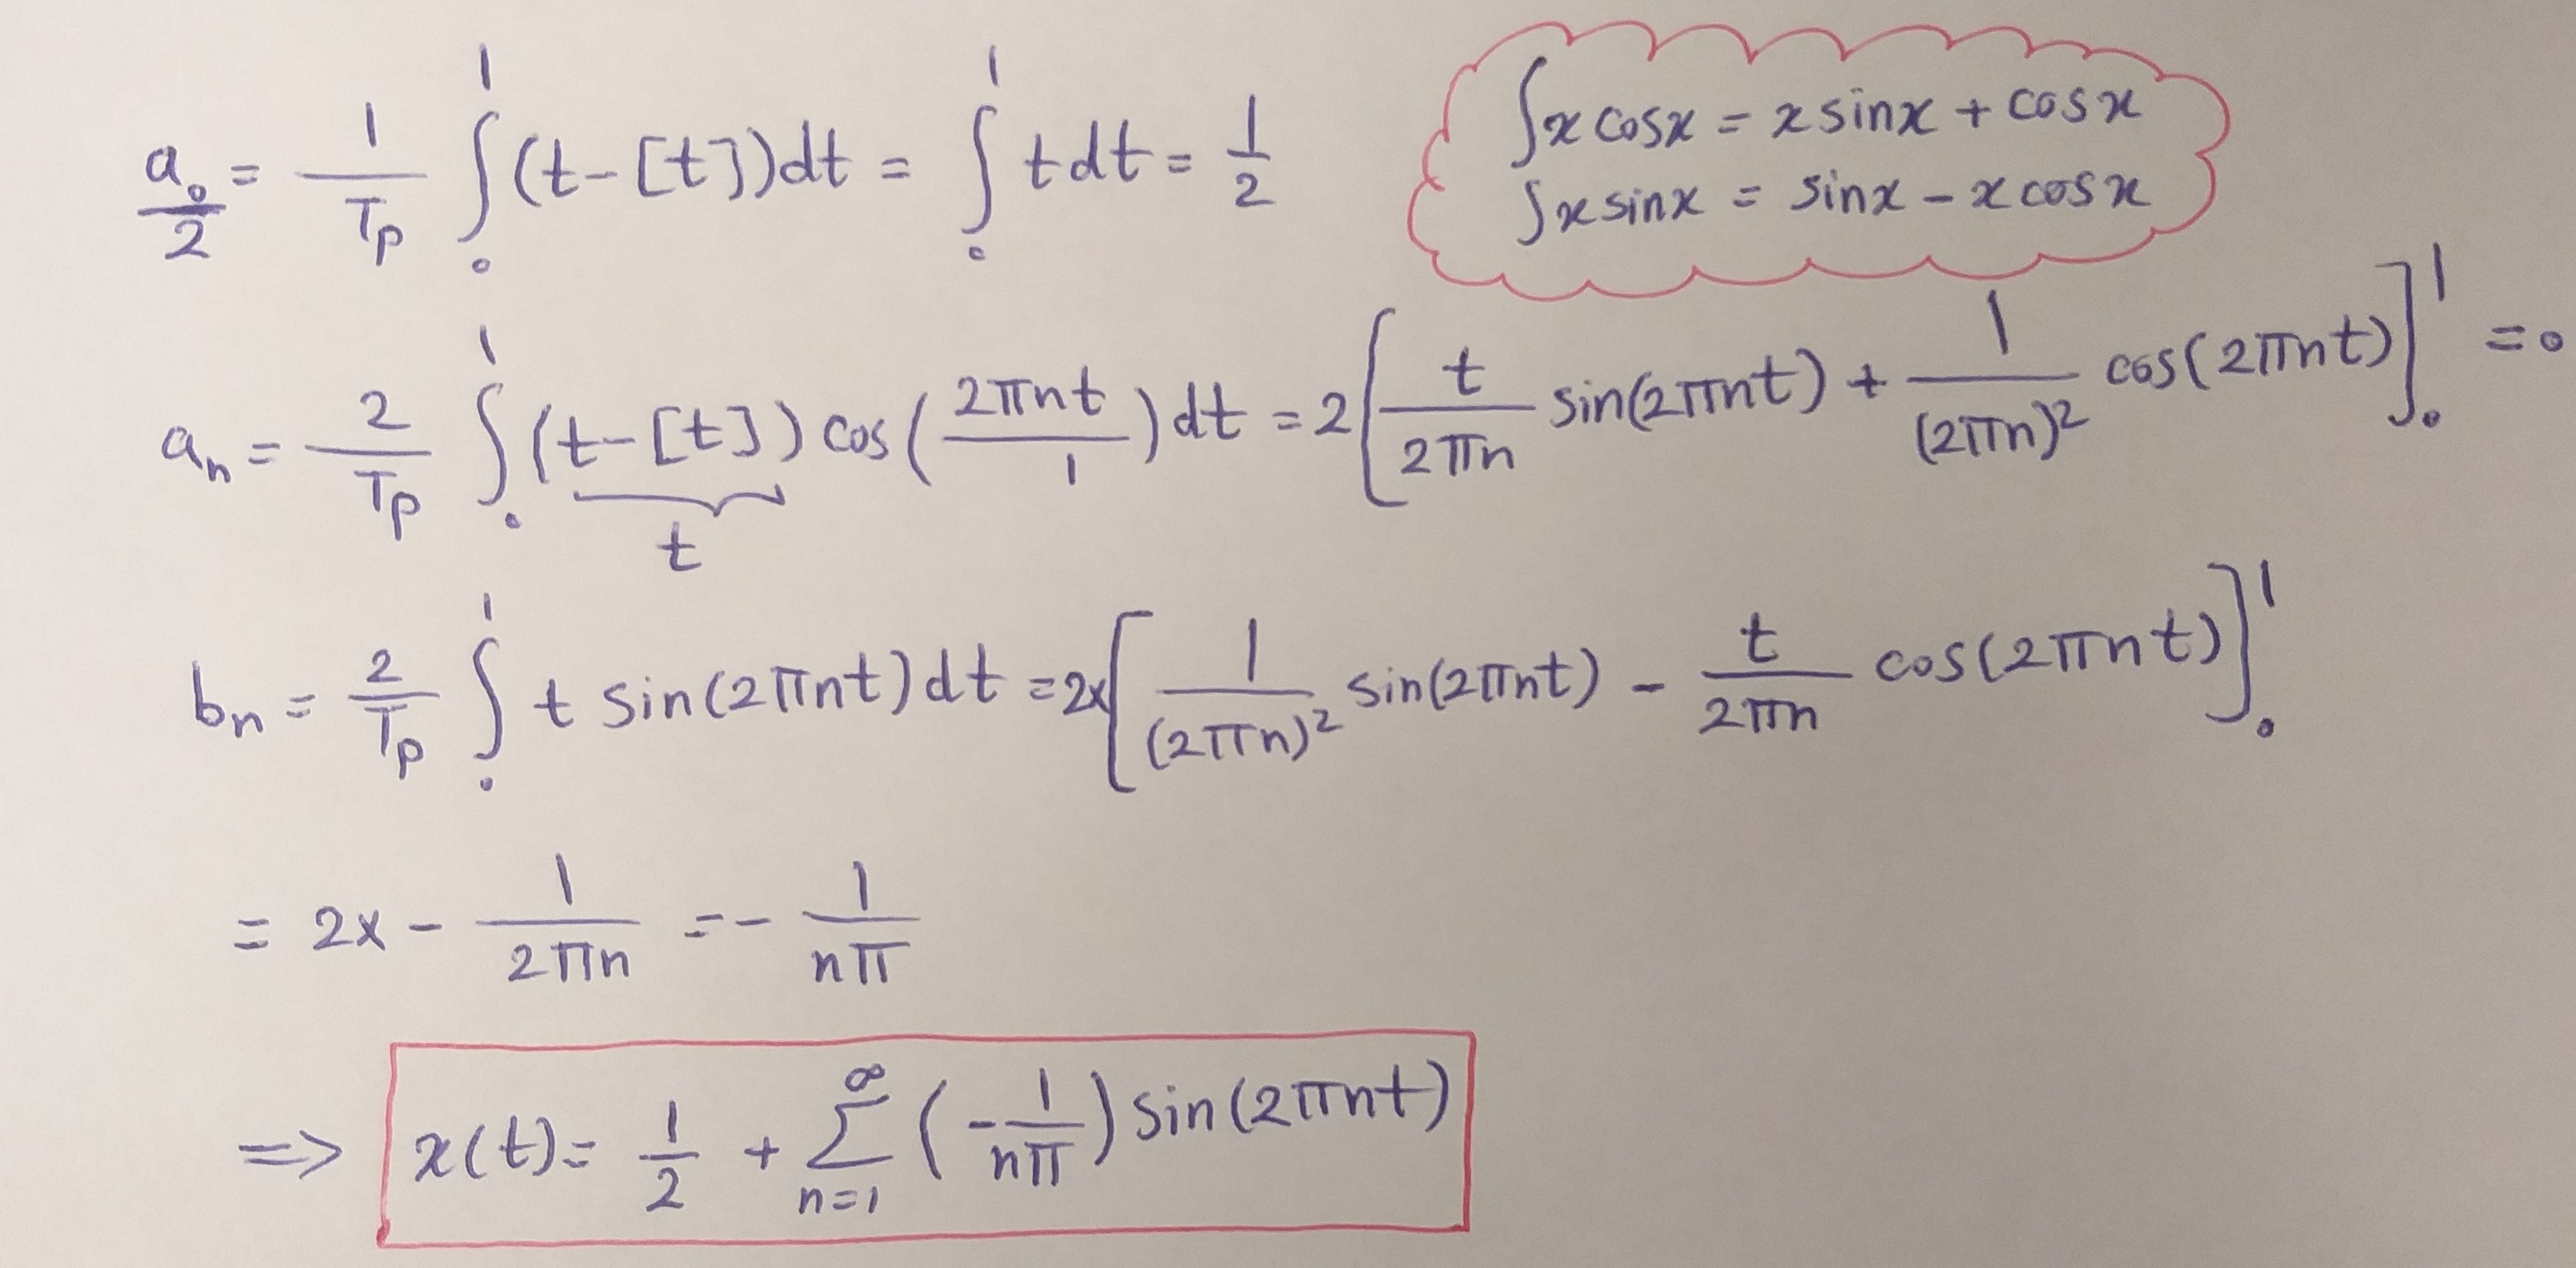 a₀/2 = 1/Tp ∫₀¹ (t-[t])dt = ∫₀¹ t dt = 1/2
∫x cosx = x sinx + cosx
∫x sinx = sinx - x cosx
aₙ = 2/Tp ∫₀¹ (t-[t]) cos(2πnt/1)dt = 2[t/2πn sin(2πnt) + 1/(2πn)² cos(2πnt)]₀¹ = 0
t
bₙ = 2/Tp ∫₀¹ t sin(2πnt)dt = 2x[1/(2πn)² sin(2πnt) - t/2πn cos(2πnt)]₀¹
= 2x - 1/2πn = - 1/nπ
=> x(t) = 1/2 + Σₙ₌₁^∞ (-1/nπ) sin(2πnt)